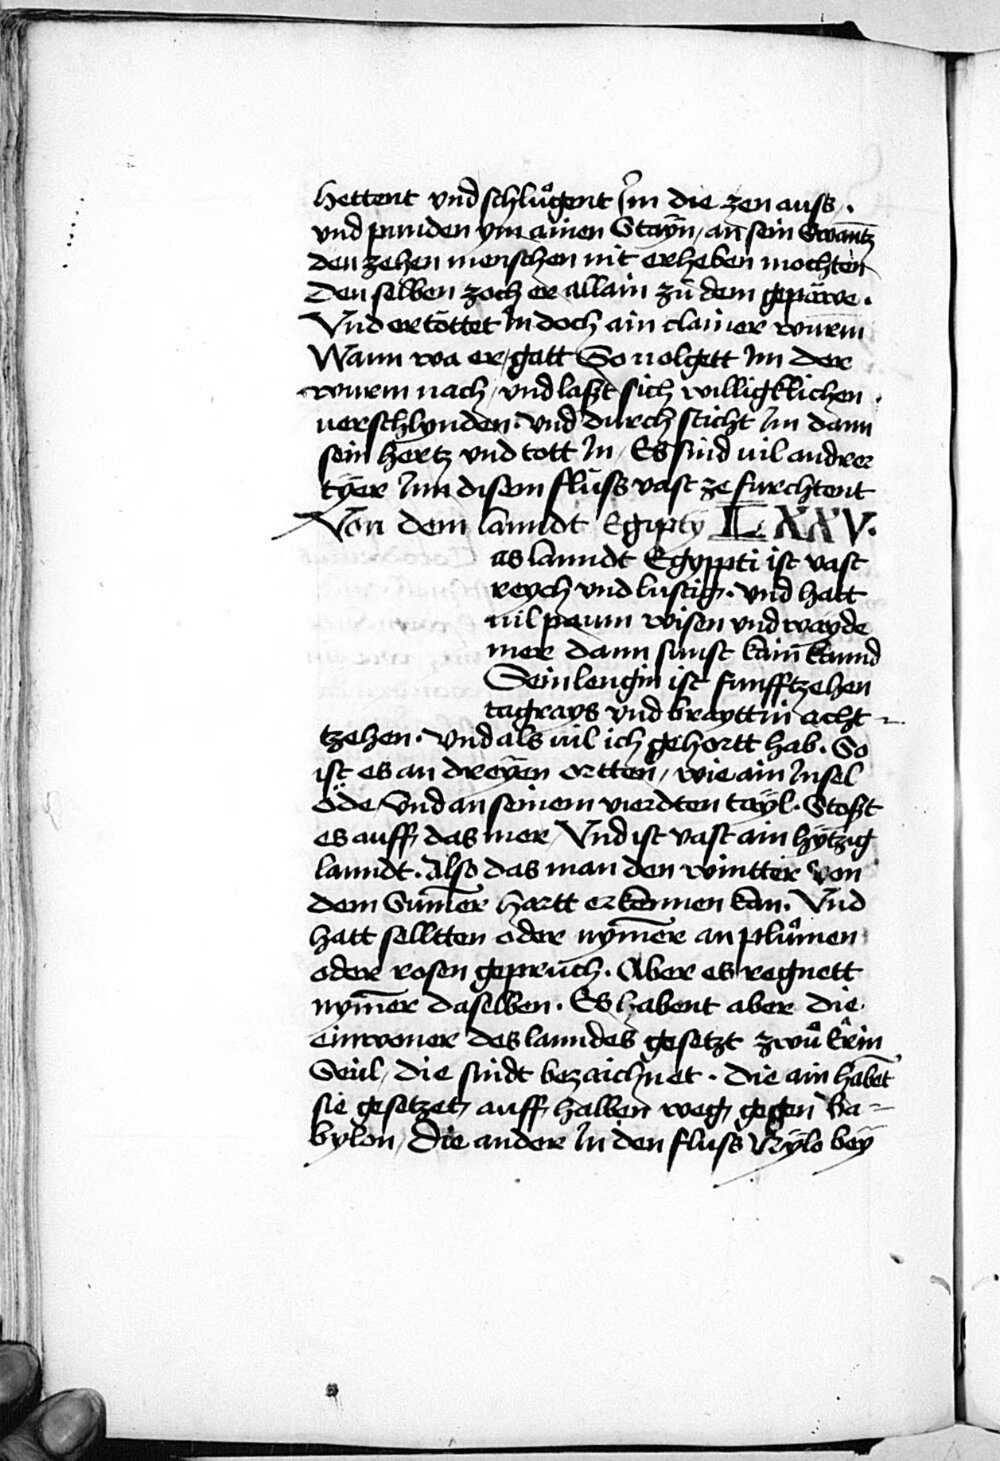 hettent vnd schlůgent Im die zen auss.
vnd punden ym ainen Stayn / an̄ sein Swantz
den zehen menschen nit erheben mochten
Den selben zoch er allain zu dem gepäwe.
Vnd ertöttet In doch ain clainer wurm
Wann wa er / gatt So uolgett Im der
wurm nach / vnd laßt sich willigklichen.
uerschlynden. vnd durch sticht Im dann
sein hertz vnd tott In / Es sind uil andrer
tÿer Inn disem fluss vast ze furchtent
Von dem lanndt Egipty LXXV.
as lanndt Egyppti ist vast
reych vnd lustig. vnd hatt
uil paum wisen vnd wayde
mer dann sunst kain̄ lannd
Sein lengin ist funfftzehen
tagrays vnd brayttin acht-
tzehen. vnd als uil ich gehortt hab. So
ist es an dreyen ortten / wie ain Insel
öde / Vnd an seinem vierdten tayl. Stoßt
es auff das mer / Vnd ist vast ain hytzig
lanndt. Also das man den wintter von
dem Sum̄er hartt erkennen kan. Vnd
hatt selltten oder nym̄er an plůmen
oder rosen gepruch. Aber es regnett
nym̄er daselben. Es habent aber die
einwoner des lanndes gesetzt zwů
Seul / die sindt bezaichnet. die ain habet
sie gesetzet auff halben weg gegen Ba-
bylon / Die ander In den fluss Nÿlo bey